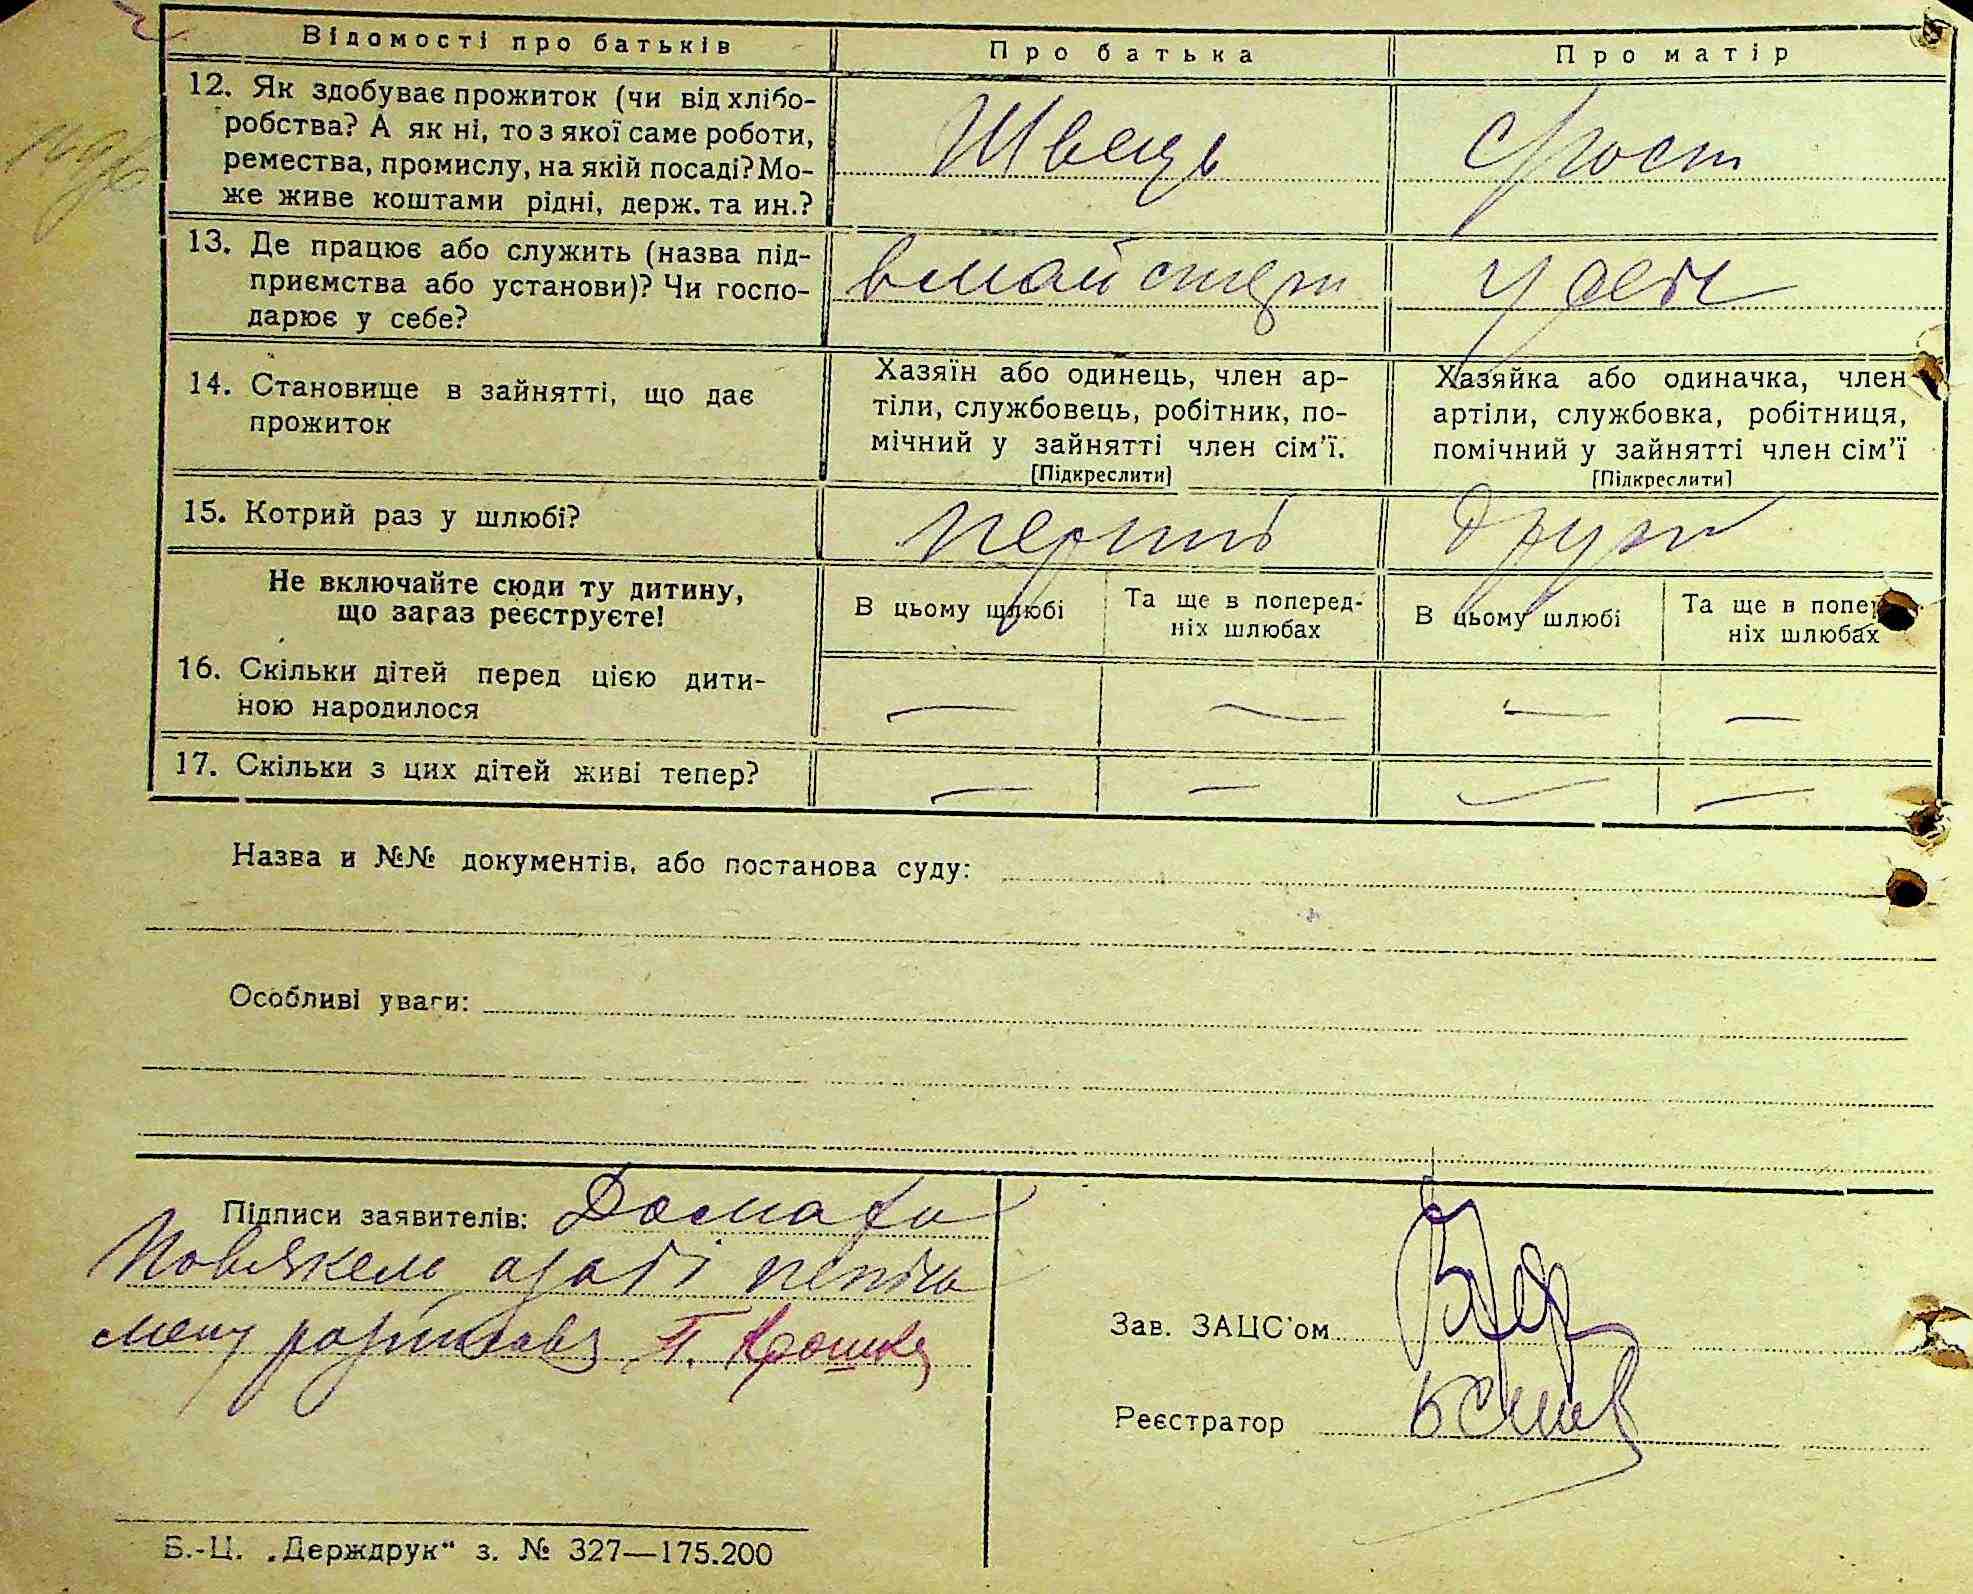 Відомості про батьків
Про батька
Про матір
12. Як здобуває прожиток (чи від хлібо-
робства? А як ні, то з якої саме роботи,
ремества, промислу, на якій посаді? Мо-
же живе коштами рідні, держ. та ин.?
Швець
13. Де працює або служить (назва під-
приємства або установи)? Чи госпо-
дарює у себе?
в майстерн
14. Становище в зайнятті, що дає
прожиток
Хазяїн або одинець, член ар-
тіли, службовець, робітник, по-
мічний у зайнятті член сім'ї.
[Підкреслити]
Хазяйка або одиначка, член
артіли, службовка, робітниця,
помічний у зайнятті член сім'ї
[Підкреслити]
15. Котрий раз у шлюбі?
перший
други
Не включайте сюди ту дитину,
що зараз реєструєте!
В цьому шлюбі
Та ще в поперед-
ніх шлюбах
В цьому шлюбі
Та ще в попе
ніх шлюбах
16. Скільки дітей перед цією дити-
ною народилося
— — — —
17. Скільки з цих дітей живі тепер?
— — — —
Назва и №№ документів, або постанова суду:
Особливі уваги:
Підписи заявителів:
П.
Зав. ЗАЦС'ом
Реєстратор
Б.-Ц. „Держдрук" з. № 327—175.200